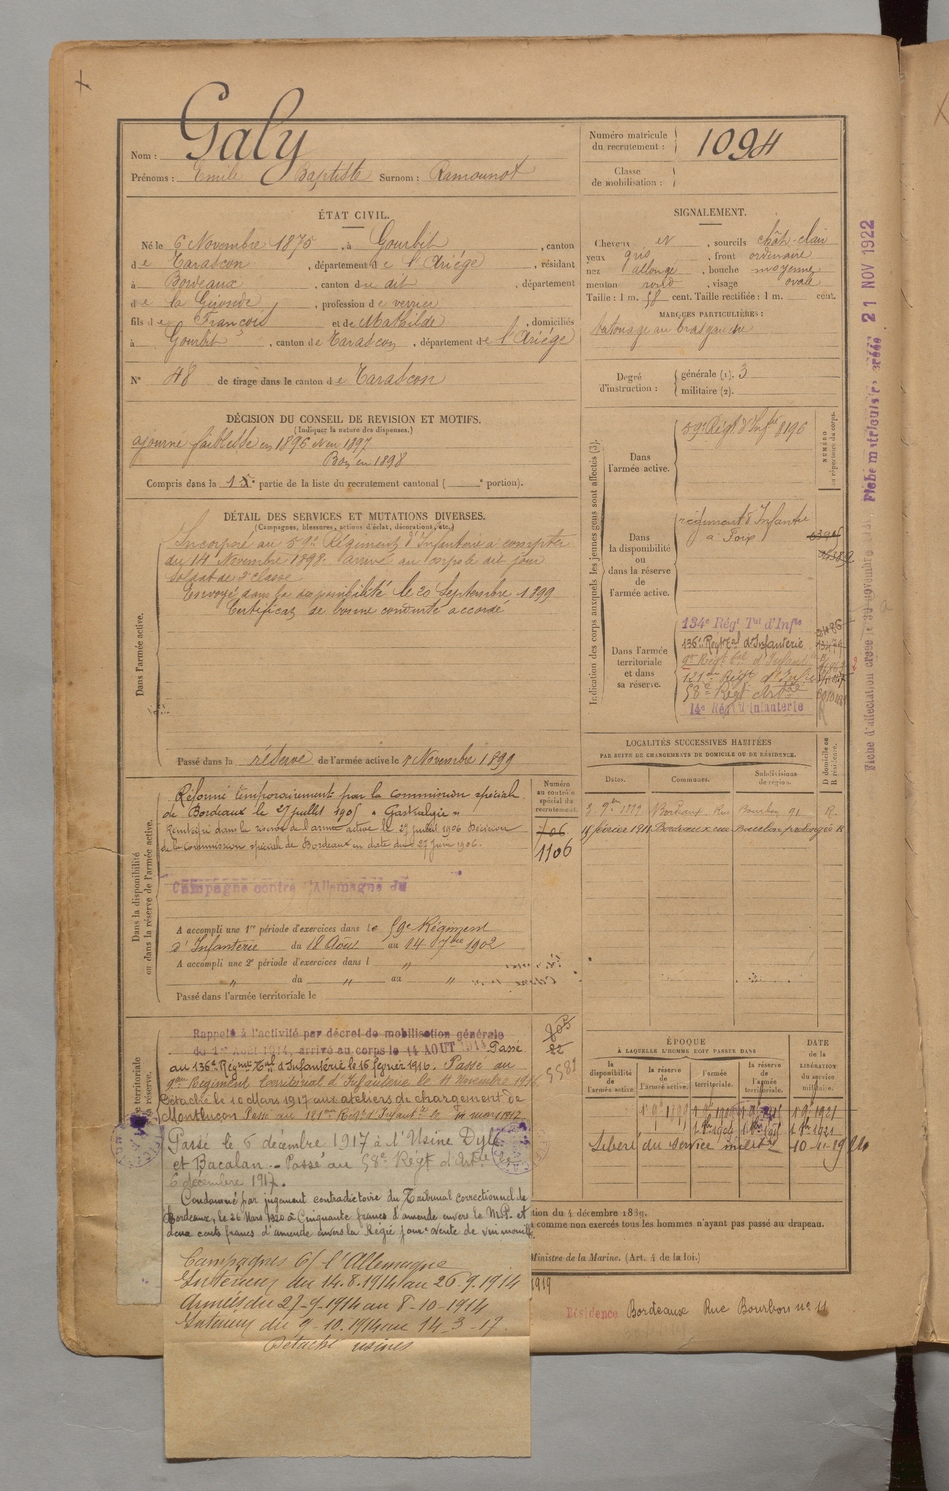 Galy
Nom :
Prénoms : Emile Baptiste Surnom : Ramounot
Numéro matricule du recrutement : 1094
Classe de mobilisation :
ÉTAT CIVIL.
Né le 6 Novembre 1875, à Gourbit, canton
de Tarascon, département de l'Ariége, résidant
à Bordeaux, canton du dit, département
de la Gironde, profession de verrier
fils de François et de Mathilde, domiciliés
à Gourbit, canton de Tarascon, département de l'Ariége
N° 48 de tirage dans le canton de Tarascon
SIGNALEMENT.
Cheveux et, sourcils chât-clair
yeux gris, front ordinaire
nez allongé, bouche moyenne
menton rond, visage ovale
Taille : 1 m. 58 cent. Taille rectifiée : 1 m. cent.
MARQUES PARTICULIÈRES :
tatouage au bras gauche
Degré d'instruction : générale (1). 3
militaire (2).
DÉCISION DU CONSEIL DE REVISION ET MOTIFS.
(Indiquer la nature des dispenses.)
ajourné faiblesse en 1896 et en 1897
Bon en 1898
Compris dans la 1e partie de la liste du recrutement cantonal ( e portion).
DÉTAIL DES SERVICES ET MUTATIONS DIVERSES.
(Campagnes, blessures, actions d'éclat, décorations, etc.)
Dans l'armée active.
Incorporé au 59e Régiment d'Infanterie à compter
du 14 Novembre 1898 arrivé au corps le dit jour
soldat de 2e classe
Envoyé dans la disponibilité le 20 Septembre 1899
Certificat de bonne conduite accordé
Passé dans la réserve de l'armée active le 1 Novembre 1899
Indication des corps auxquels les jeunes gens sont affectés (3).
NUMÉRO au répertoire du corps.
Dans l'armée active.
59e Régt d'Infie 8196
Dans la disponibilité ou dans la réserve de l'armée active.
régiment d'Infanterie
à Foix
Dans l'armée territoriale et dans sa réserve.
134e Régt Tal d'Infie
136e Régt Tal d'Infanterie
9e Régt tal d'Infanterie
121me Régt d'Infie
58e Régt Artie
14e Régt d'Infanterie
Fiche d'affectation créée le 30 novembre
Fiche matriculaire créée 21 NOV 1922
Dans la disponibilité ou dans la réserve de l'armée active.
Réformé temporairement par la commission spéciale
de Bordeaux le 27 juillet 1905 « Gastralgie »
Réintégré dans la réserve de l'armée active le 27 juillet 1906 Décision
de la Commission spéciale de Bordeaux en date du 27 Juin 1906.
Campagne contre l'Allemagne du
A accompli une 1re période d'exercices dans le 59e Régiment
d'Infanterie du 18 Août au 14 7bre 1902
A accompli une 2e période d'exercices dans l "
" du " au "
Passé dans l'armée territoriale le
Numéro au contrôle spécial du recrutement.
706
1106
LOCALITÉS SUCCESSIVES HABITÉES
PAR SUITE DE CHANGEMENTS DE DOMICILE OU DE RÉSIDENCE.
Dates. Communes. Subdivisions de région. D domicile ou R résidence.
Bordeaux Rue Bourbon 91 R.
février 1911 Bordeaux rue Buccelon prolongée R
Rappelé à l'activité par décret de mobilisation générale
du 1er Août 1914, arrivé au corps le 14 AOUT 1914 Passé
au 136e Régiment Tal d'Infanterie le 16 février 1916. Passé au
9me Régiment territorial d'Infanterie le 11 Novembre 1916
Détaché le 10 Mars 1917 aux ateliers de chargement de
Montluçon Passé au 121me Régt d'Infanterie le mars 1917
Passé le 6 décembre 1917 à l'Usine Dyle
et Bacalan. - Passé au 58e Régt d'Artie le
6 décembre 1917.
Condamné par jugement contradictoire du Tribunal correctionnel de
Bordeaux, le 26 Mars 1920 à Cinquante francs d'amende envers le M.P. et
deux cents francs d'amende envers la Régie pour vente de vin mouillé.
Campagnes C/ l'Allemagne
Intérieur du 14.8.1914 au 26.9.1914
Armées du 27-9-1914 au 8-10-1914
Intérieur du 9-10.1914 au 14-3-17.
Détaché usines
ÉPOQUE
À LAQUELLE L'HOMME DOIT PASSER DANS
la disponibilité de l'armée active.
la réserve de l'armée active.
l'armée territoriale.
la réserve de l'armée territoriale.
DATE de la LIBÉRATION du service militaire.
1 9bre 1921
Libéré du Service milite
tion du 4 décembre 1889.
comme non exercés tous les hommes n'ayant pas passé au drapeau.
Ministre de la Marine. (Art. 4 de la loi.)
1919
Résidence Bordeaux Rue Bourbon no 11